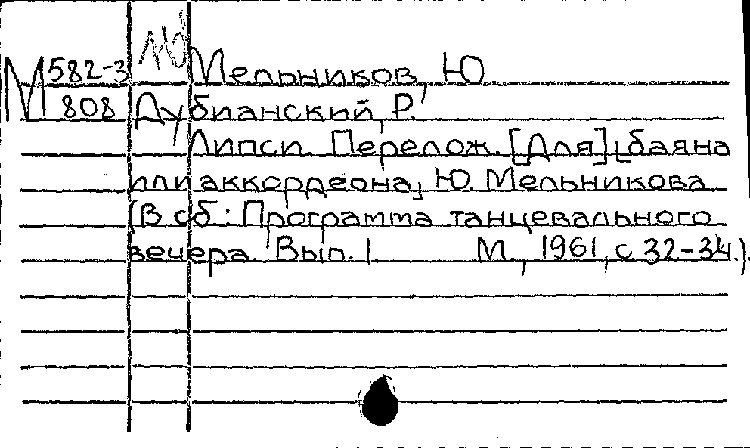 М 582-3 Мельников, Ю
808 Дубианский, Р.
Липси. Перелож. [Для] [баяна
или аккордеона] Ю. Мельникова
(В сб.: Программа танцевального
вечера. Вып. 1 М., 1961, с 32-34.).